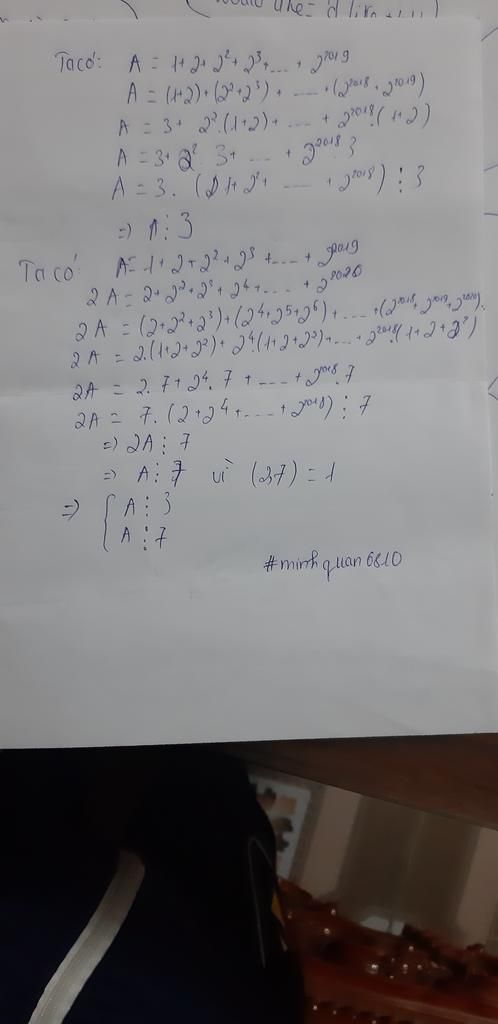 Ta có: A = 1+2+2²+2³+....+ 2²⁰¹⁹
A = (1+2)+(2²+2³)+ ..... +(2²⁰¹⁸+2²⁰¹⁹)
A = 3+ 2².(1+2)+ ..... + 2²⁰¹⁸.(1+2)
A = 3+2². 3+ ..... + 2²⁰¹⁸.3
A = 3. (1+2²+ ..... + 2²⁰¹⁸) ⋮ 3
=> A ⋮ 3
Ta có: A=1+2+2²+2³ +....+ 2²⁰¹⁹
2A = 2+2²+2³+2⁴+....+2²⁰²⁰
2A = (2+2²+2³)+(2⁴+2⁵+2⁶)+.....+(2²⁰¹⁸+2²⁰¹⁹+2²⁰²⁰).
2A = 2.(1+2+2²)+2⁴.(1+2+2²)+....+2²⁰¹⁸.(1+2+2²)
2A = 2.7+2⁴.7+.....+2²⁰¹⁸.7
2A = 7.(2+2⁴+.....+2²⁰¹⁸) ⋮ 7
=> 2A ⋮ 7
=> A ⋮ 7 vì (27) = 1
=> { A ⋮ 3
A ⋮ 7
#minhquan6810